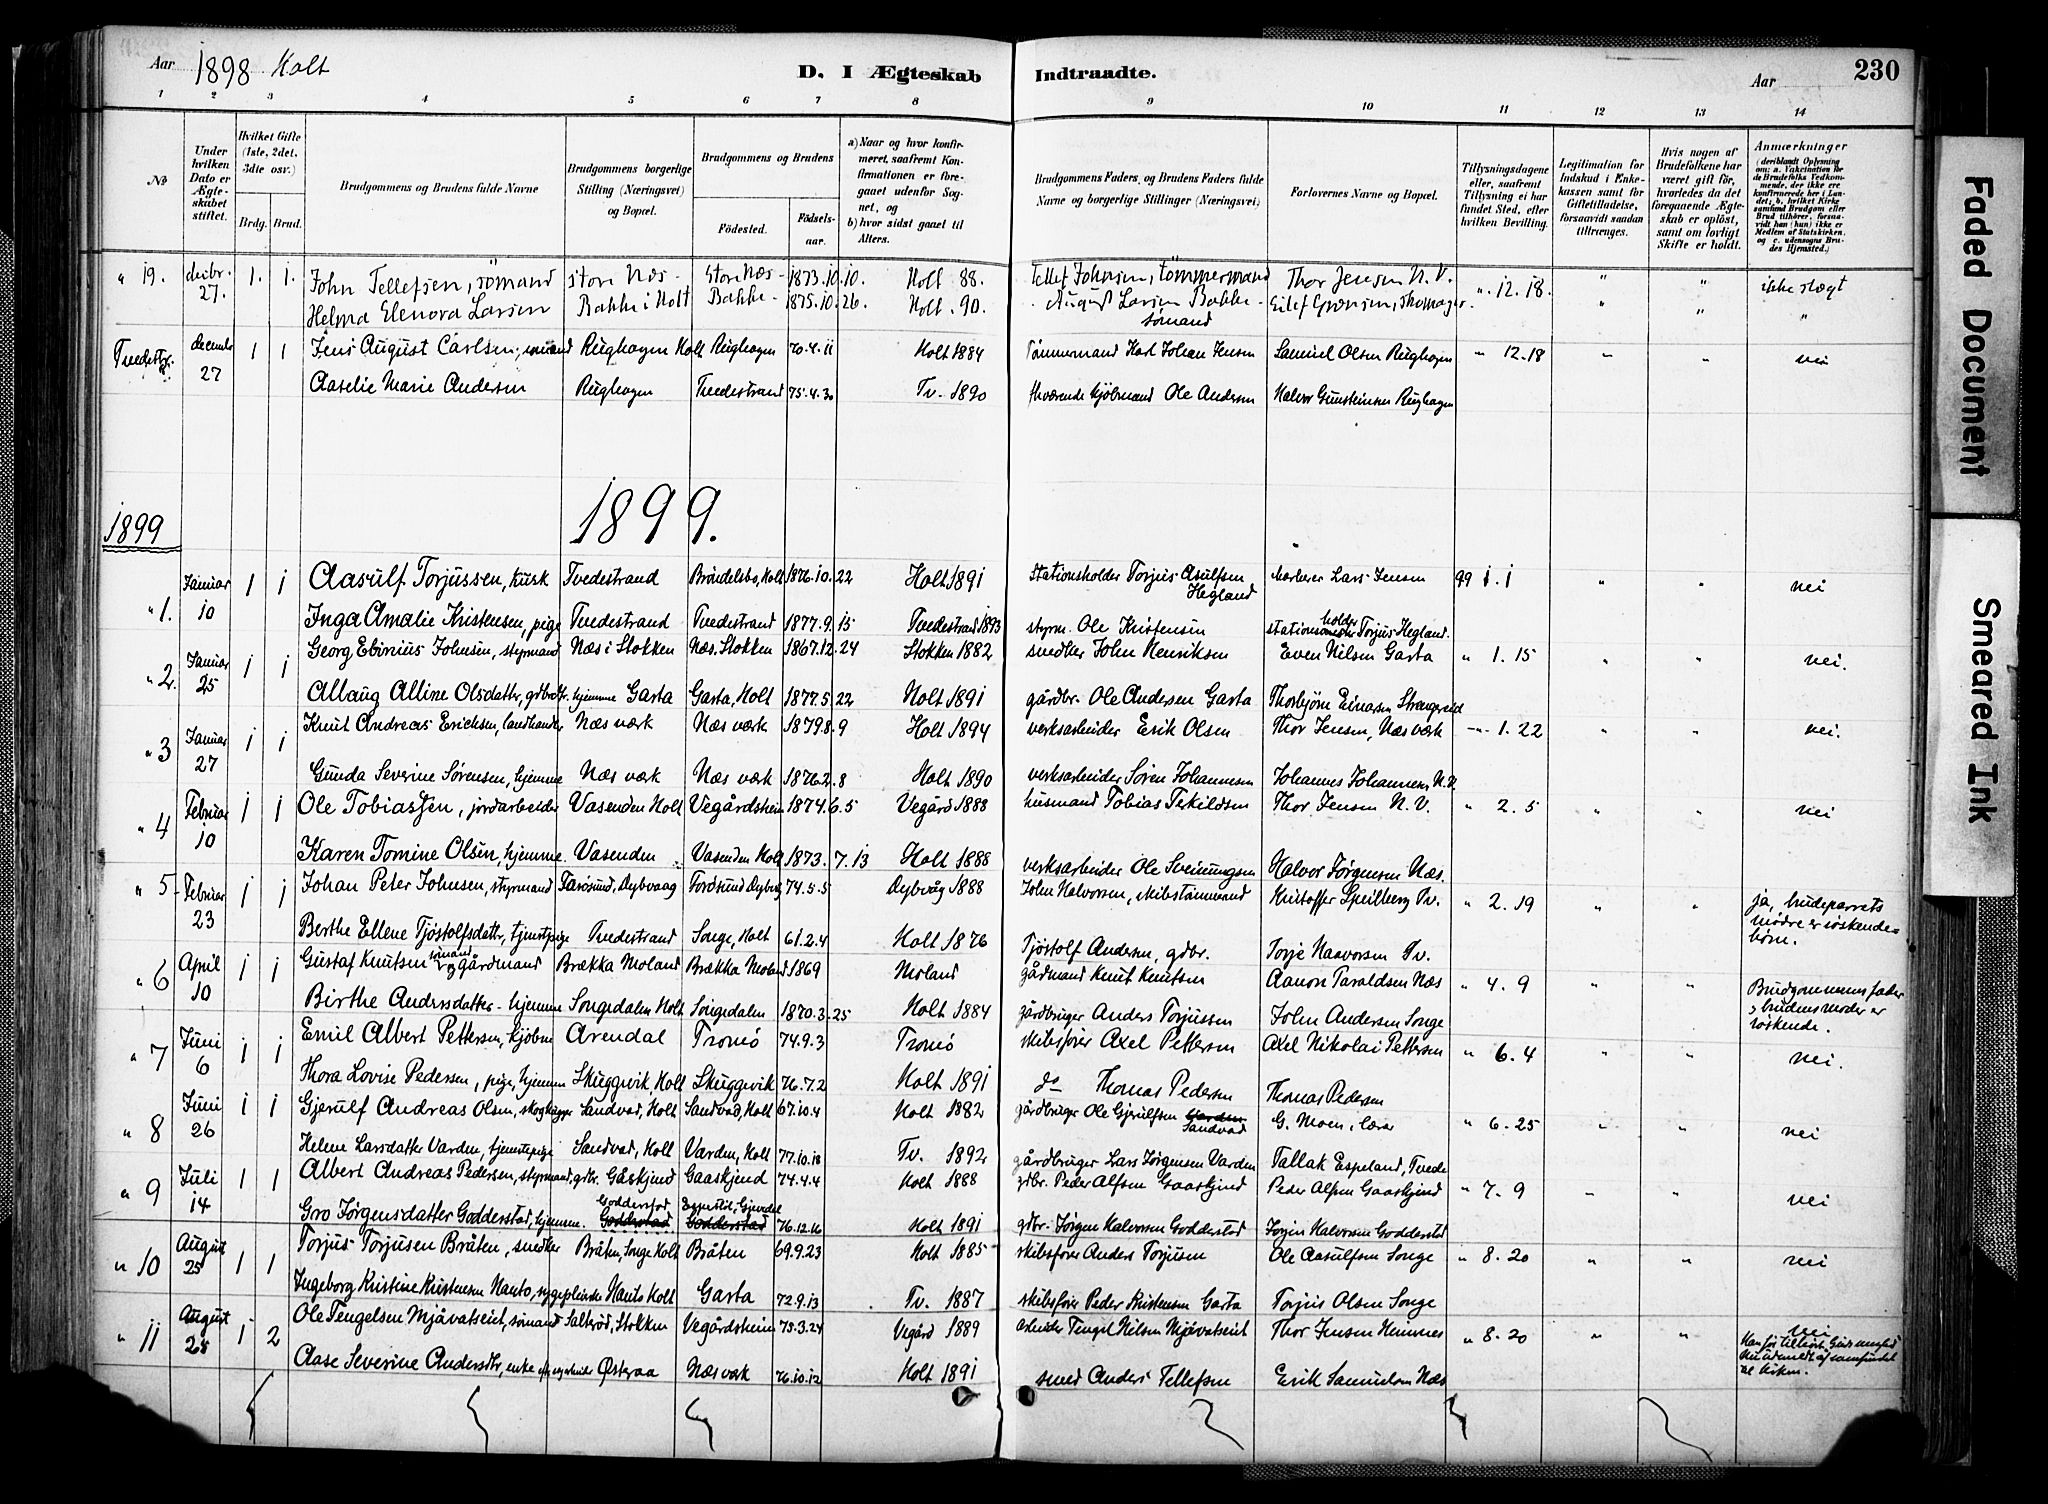 Aar 1898 Holt
D. I Ægteskab Indtraadte.
Aar 230
1 2 3 4 5 6 7 8 9 10 11 12 13 14
No
Under hvilken Dato er Ægteskabet stiftet.
Hvilket Gifte (1ste, 2det, 3die osv.)
Brdg. Brud.
Brudgommens og Brudens fulde Navne
Brudgommens borgerlige Stilling (Næringsvei) og Bopæl.
Brudgommens og Brudens
Födested. Födselsaar.
a) Naar og hvor konfirmeret, saafremt Konfirmationen er foregaaet udenfor Sognet, og
b) hvor sidst gaaet til Alters.
Brudgommens Faders og Brudens Faders fulde Navne og borgerlige Stillinger (Næringsvei)
Forlovernes Navne og Bopæl.
Tillysningsdagene eller, saafremt Tillysning ei har fundet Sted, efter hvilken Bevilling.
Legitimation for Indskud i Enkekassen samt for Giftetilladelse, forsaavidt saadan tiltrænges.
Hvis nogen af Brudefolkene har været gift för, hvorledes da det foregaaende Ægteskab er oplöst, samt om lovligt Skifte er holdt.
Anmærkninger (deriblandt Oplysning om: a. Vakcination for de Brudefolks Vedkommende, der ikke ere konfirmerede her i Landet; b. hvilket Kirkesamfund Brudgom eller Brud tilhörer, forsaavidt han (hun) ikke er Medlem af Statskirken, og c. udensogns Brudes Hjemsted.)
" 19. decbr. 27. 1. 1. John Tellefsen, sömand store Næs - Store Næs - 1873.10.10. Holt 88. Tellef Johnsen, tömmermand Thor Jensen N. V. " 12.18. " " ikke slægt
Helma Elenora Larsen Bakke i Holt Bakke - 1875.10.26. Holt. 90. August Larsen Bakke - sömand skomager. " " "
Tvedestr. decembr 27 1 1 Jens August Carlsen, sömand Rughagen Holt Rughagen 70.4.11 Holt 1884 Tömmermand Karl Johan Jensen Samuel Olsen Rughagen " 12.18 " " nei
Aaselie Marie Andersen Rughagen Tvedestrand 75.4.30 Tv. 1890 fhværende kjöbmand Ole Andersen Halvor Gunsteinsen Rughagen
1899 1899.
" 1. Januar 10 1 1 Aasulf Torjussen, kusk Tvedestrand Bröndelsbo, Holt 1876.10.22 Holt 1891 Stationsholder Torjus Asulfsen Hegland Lars Jensen 99 1.1 " " nei
Inga Amalie Kristensen, pige Tvedestrand Tvedestrand 1877.9.15 Tvedestrand 1893 styrm. Ole Kristensen stationsholder Torjus Hegland.
" 2. Januar 25 1 1 Georg Ebinius Johnsen, styrmand Næs i Stokken Næs, Stokken 1867.12.24 Stokken 1882 snedker John Henriksen Even Nilsen Garta " 1.15 " " nei.
Allaug Alline Olsdattr, gdbrdtr. hjemme Garta Garta, Holt 1877.5.22 Holt 1891 gårdbr. Ole Andersen Garta Thorbjörn Einarsen Strengereid
" 3 Januar 27 1 1 Knut Andreas Ericksen, landhandler Næs værk Næs værk 1879.8.9 Holt 1894 verksarbeider Erik Olsen Thor Jensen, Næs værk -"- 1.22 " " nei.
Gunda Severine Sørensen, hjemme Næs værk Næs værk 1876.2.8 Holt 1890 verksarbeider Søren Johannesen Johannes Johannesen N.V.
" 4 Februar 10 1 1 Ole Tobiassen, jordarbeider Vasenden Holt Vegårdsheien 1874.6.5 Vegård 1888 husmand Tobias Terkildsen Thor Jensen N. V. " 2.5 " " nei
Karen Tomine Olsen, hjemme. Vasenden " Vasenden Holt 1873.7.13 Holt 1888 verksarbeider Ole Sveinungsen Halvor Jörgensen Næs.
" 5 - Februar 23 1 1 Johan Peter Johnsen, styrmand Farösund, Dybvaag Fordsund Dybvg 74.5.5 Dybvåg 1888 John Halvorsen, skibstömmermand Kristoffer Speilberg Tv. " 2.19 " " ja, brudeparrets mödre er söskendebörn.
Berthe Ellene Tjöstolfsdattr, tjenestpige Tvedestrand Songe, Holt 61.2.4 Holt 1876 Tjöstolf Andersen, gdbr. Torje Haavorsen Tv.
" 6 April 10 1 1 Gustaf Knutsen sömand og gårdmand Brækka Moland Brækka Moland 1869 Moland gårdmand Knut Knutsen Aanon Taraldsen Næs " 4.9 " " Brudgommens fader & brudens moder er söskende.
Birthe Andersdatter - hjemme Songedalen Holt Songedalen 1870.3.25 Holt 1884 gårdbruger Anders Torjussen John Andersen Songe
" 7 Juni 6 1 1 Emil Albert Pettersen, kjöbm Arendal Tromö 74.9.3 Tromö skibsförer Axel Pettersen Axel Nikolai Pettersen " 6.4 " " nei.
Thora Lovise Pedersen, pige, hjemme Skuggevik Holt Skuggevik 76.7.2 Holt 1891 do Thomas Pedersen Thomas Pedersen
" 8 Juni 26 1 1 Gjerulf Andreas Olsen, skoghugger Sandvad, Holt Sandvad, Holt 67.10.4 Holt 1882 gårdbruger Ole Gjerulfsen Varden Sandvad G. Moen, lærer " 6.25 " " nei
Helene Larsdatter Varden, tjenestpige Sandvad, Holt Varden, Holt 77.10.18 Tv. 1892 gårdbruger Lars Jörgensen Varden Tallak Espeland, Tvede
" 9 Juli 14 1 1 Albert Andreas Pedersen, styrmand, gdbr. Gåskjend Gaaskjend 74.4.4 Holt 1888 gdbr. Peder Alfsen Gaaskjend Peder Alfsen Gaaskjend " 7.9 " " nei
Gro Jörgensdatter Godderstad, hjemme. Godderstad Goddestad Eppestöl, Gjevedal Godderstad 76.12.16 Holt 1891 gdbr. Jörgen Halvorsen Godderstad Jörgen Halvorsen Godderstad
" 10 August 25 1 1 Torjus Torjusen Bråten, snedker Bråten, Songe Holt Bråten 69.9.23 Holt 1885 skibsförer Anders Torjusen Ole Aasulfsen Songe " 8.20 " " nei
Ingeborg Kristine Kristensen Nauto, sygepleierske Nauto Holt Garta 72.9.13 Tv. 1887 skibsförer Peder Kristensen Garta Torjus Olsen Songe
" 11 August 25 1 2 Ole Tengelsen Mjåvatseit, sömand Salteröd, Stokken Vegårdsheien 75.3.24 Vegård 1889 arbeider Tengel Nilsen Mjåvatseit Thor Jensen Heimnes " 8.20 " " nei
Aase Severine Andersdtr, enke Østeraa Næs værk 76.10.12 Holt 1891 smed Anders Tellefsen Erik Samuelsen Næs
Faded Document
Smeared Ink